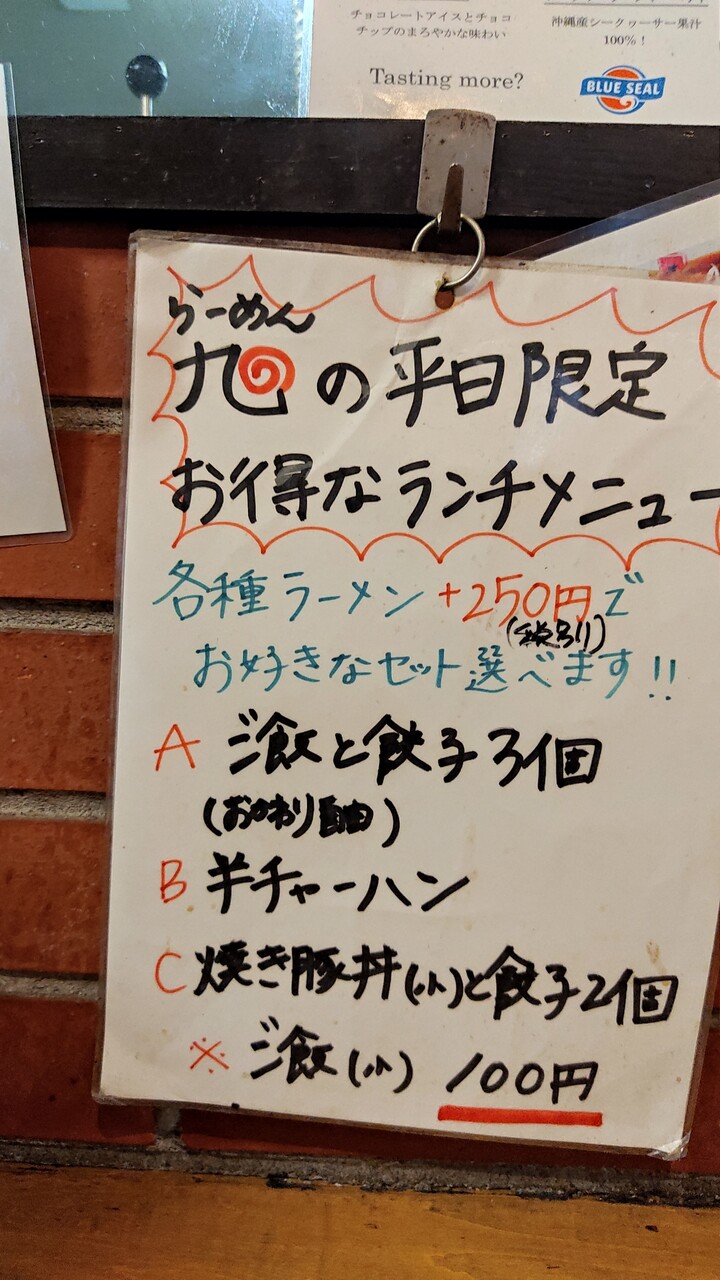 チョコレートアイスとチョコ
チップのまろやかな味わい
沖縄産シークヮーサー果汁
100%！
Tasting more?
BLUE SEAL
らーめん
九の平日限定
お得なランチメニュー
各種ラーメン+250円で
(税別)
お好きなセット選べます!!
A ご飯と餃子3個
(おかわり自由)
B 半チャーハン
C 焼き豚丼(小)と餃子2個
※ ご飯(小) 100円